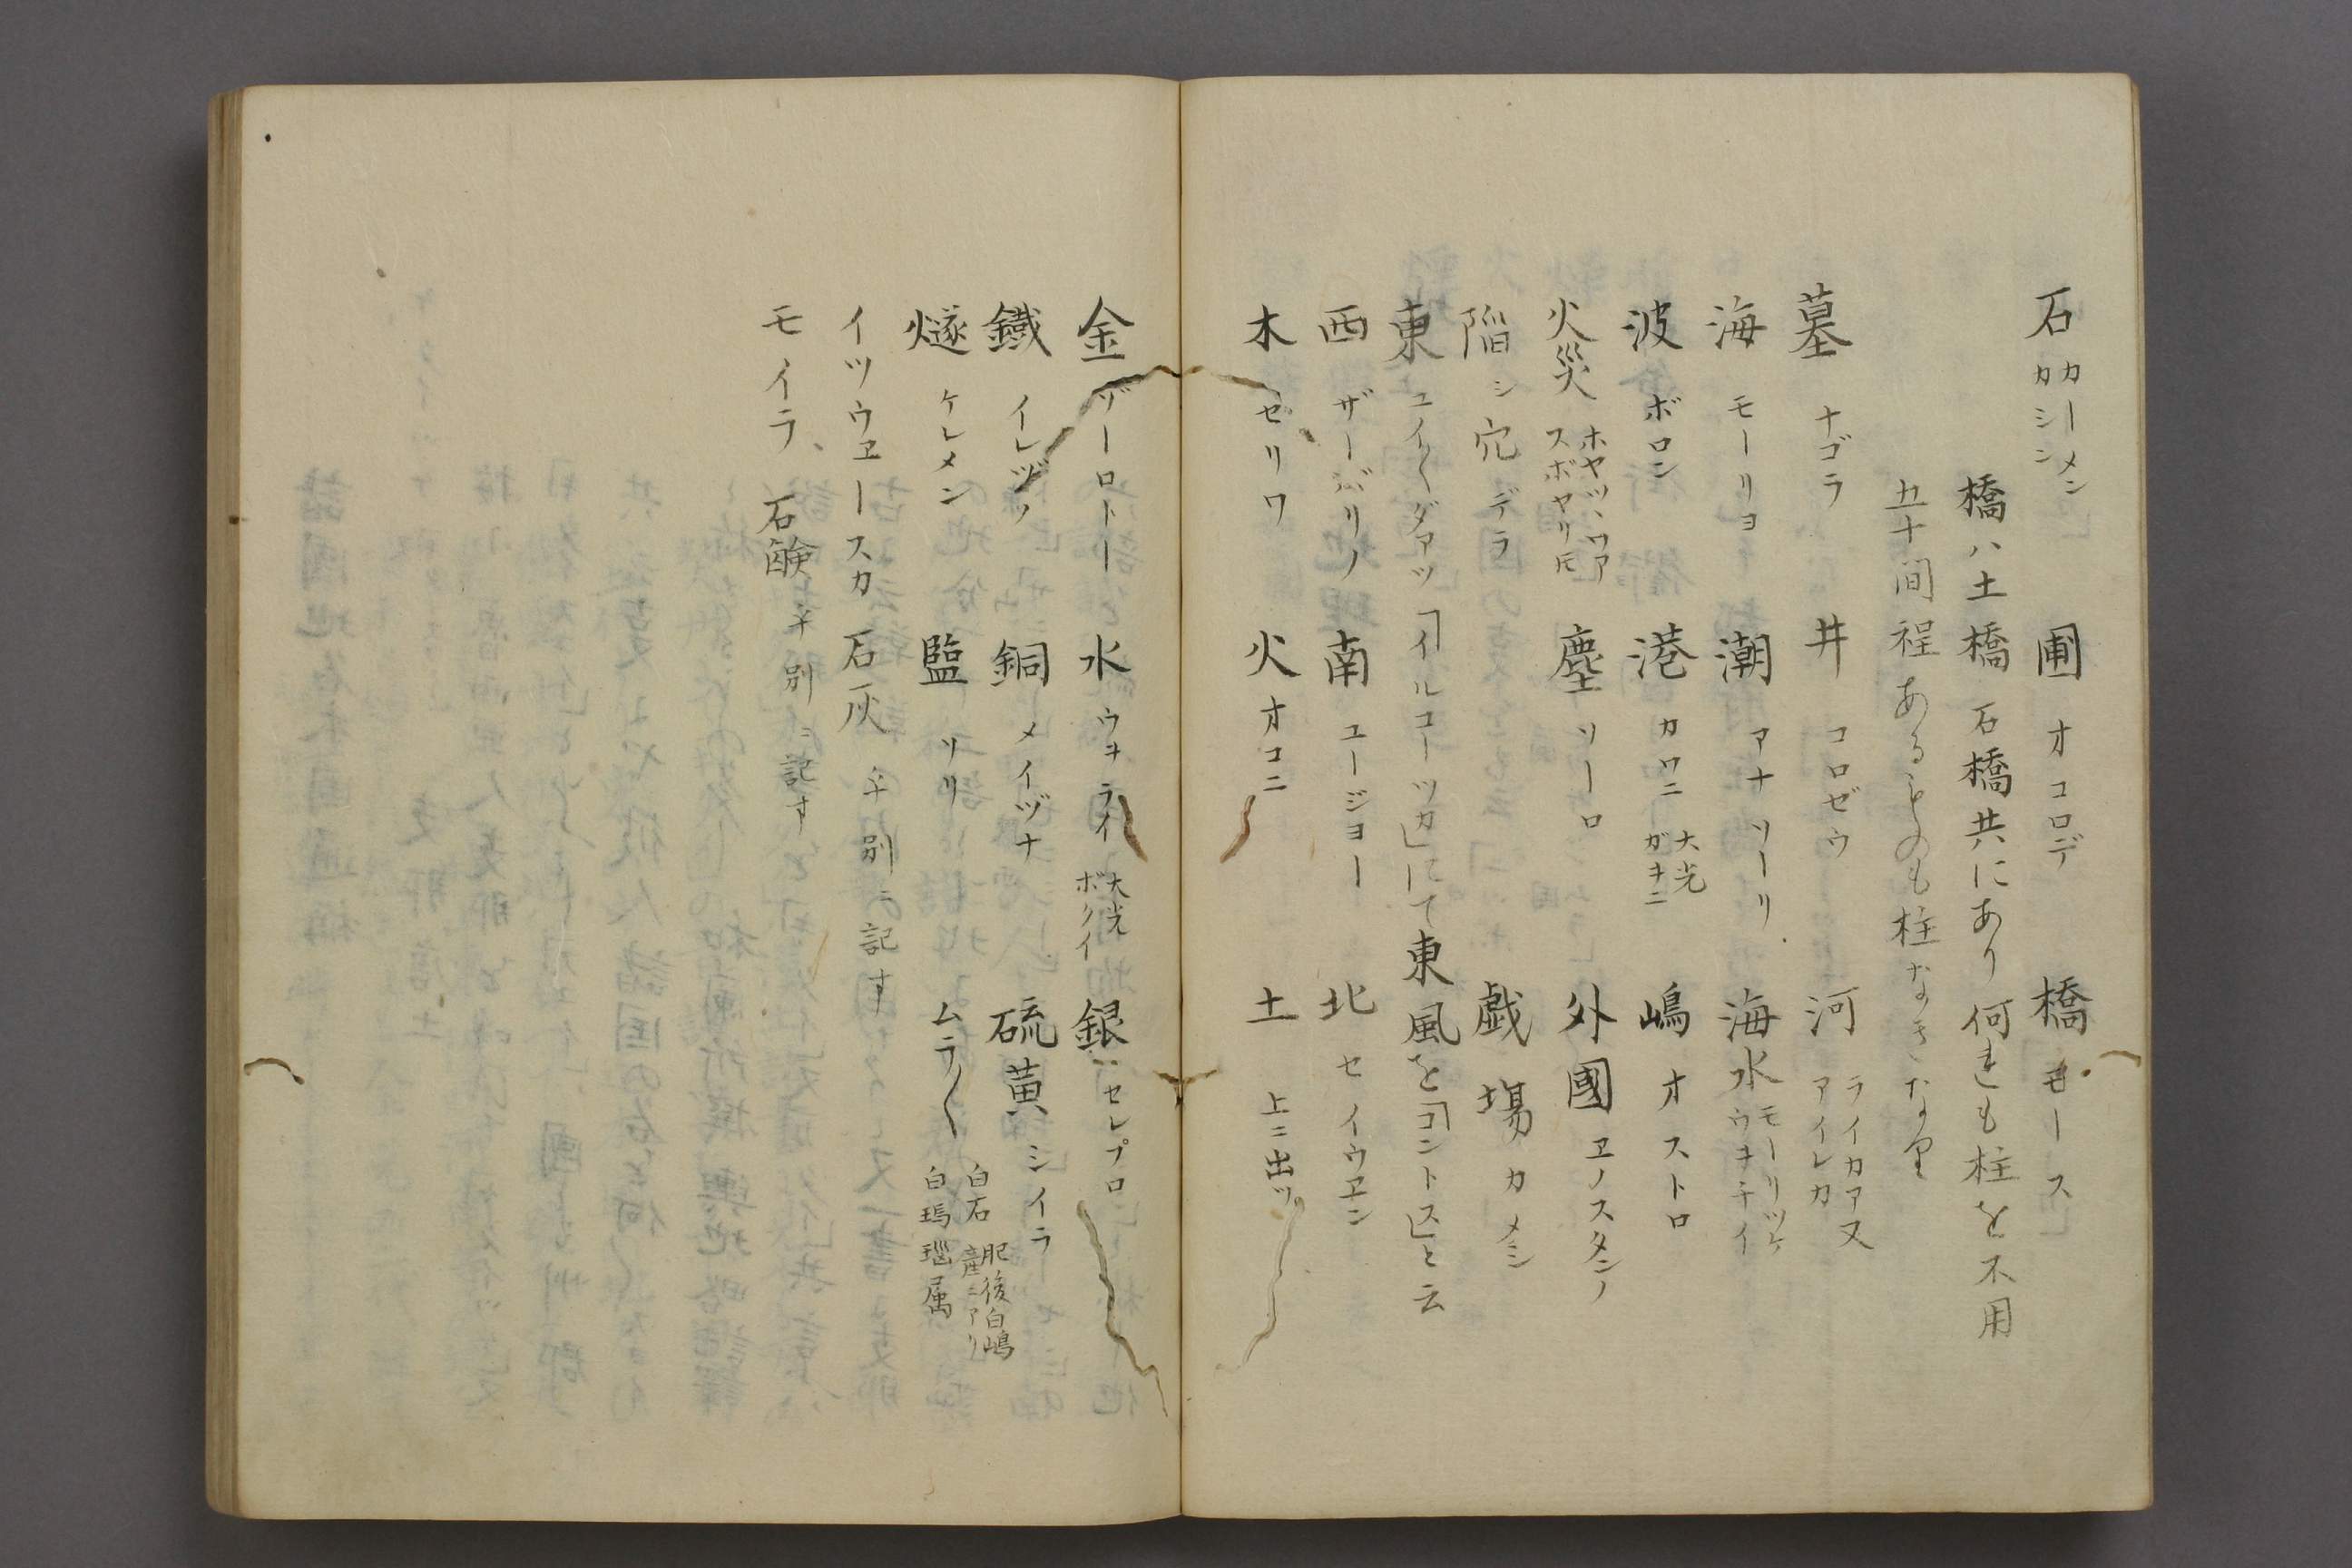 石 カーメン カシン 圃 オコロデ 橋 モース
橋ハ土橋石橋共にあり何れも柱を不用
五十間程あるものも柱なきなり
墓 ナゴラ 井 コロゼウ 河 ライカア又 アイレカ
海 モーリヨ 潮 アナソーリ 海水 モーリツケ ウヲテイ
波 ボロン 港 カワニ 大光 ガキニ 嶋 オストロ
火災 ホヤツヽウア スボヤリ氏 塵 ソーロ 外國 ヱノスタンノ
陥シ穴 デラ 戯場 カメシ
東 ユイ〱ダアツ「イルコーツカ」にて東風を「コントス」と云
西 ザーバリノ 南 ユージヨー 北 セイウヱン
木 セリワ 火 オコニ 土 上ニ出ツ
金 ゾーロトー 水 ウヲライ 大光 ボクイ 銀 セレプロ
鐵 イレヅノ 銅 メイヅナ 硫黄 シイラ
燧 ケレメン 鹽 ソリ ムラ〱 白石 肥後白嶋産ニアリ 白瑪瑙属
イツウヱースカ 石灰 卒別ニ記す
モイラ 石鹸 卒別ニ記す